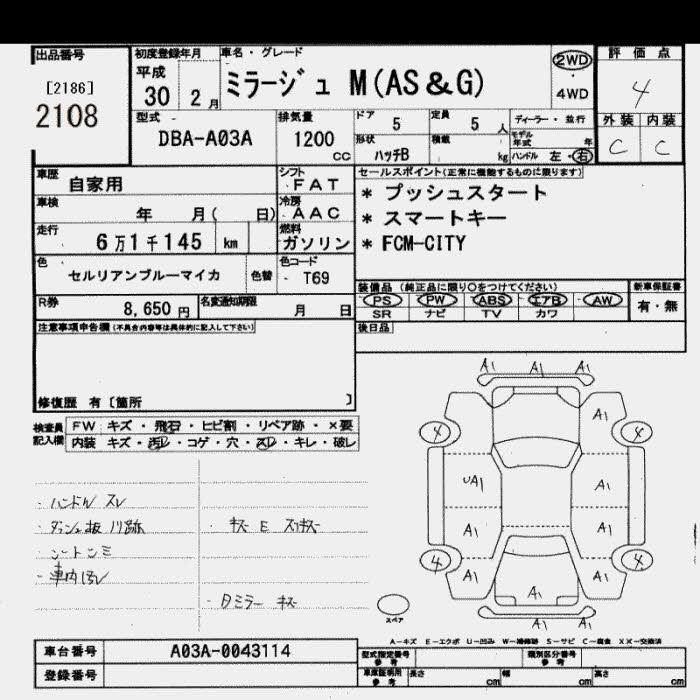 出品番号 初度登録年月 車名・グレード 評価点
[2186] 平成 ミラージュ M(AS&G) 2WD 4
2108 30 2月 4WD
型式 排気量 ドア 定員 ディーラー・並行 外装 内装
DBA-A03A 1200 CC 5 5人 モデル年式 年 C C
形状 積載
ハッチB kg ハンドル 左・右
車歴 自家用 シフト FAT セールスポイント(正常に機能するものに限ります)
車検 年 月( 日) 冷房 AAC * プッシュスタート
走行 6万1千145 km 燃料 ガソリン * スマートキー
* FCM-CITY
色 セルリアンブルーマイカ 色替 色コード T69
装備品 (純正品に限り○をつけてください) 新車保証書
R券 8,650円 名変通知期限 月 日 PS PW ABS エアB AW 有・無
SR ナビ TV カワ
注意事項申告欄(不具合内容等は具体的に記入して下さい) 後日品
修復歴 有 [箇所 ]
検査員記入欄 FW キズ・飛石・ヒビ割・リペア跡・×要
内装 キズ・汚レ・コゲ・穴・スレ・キレ・破レ
A1 A1 A1
A1
4 4
UA1 A1
A1 A1
4 4
A1 A1 A1
A1 A1 A1
・ハンドル スレ
・ダッシュ板 パリ跡 ・キズ E スリキズ
・シートシミ
・車内汚レ
・Dミラー キズ
スペア
A-キズ E-エクボ U-凹み W-補修跡 S-サビ C-腐食 X.XX-交換済
車台番号 A03A-0043114 型式指定番号 参考 類別区分番号 参考
登録番号 車庫証明用 参考 長さ cm 幅 cm 高さ cm